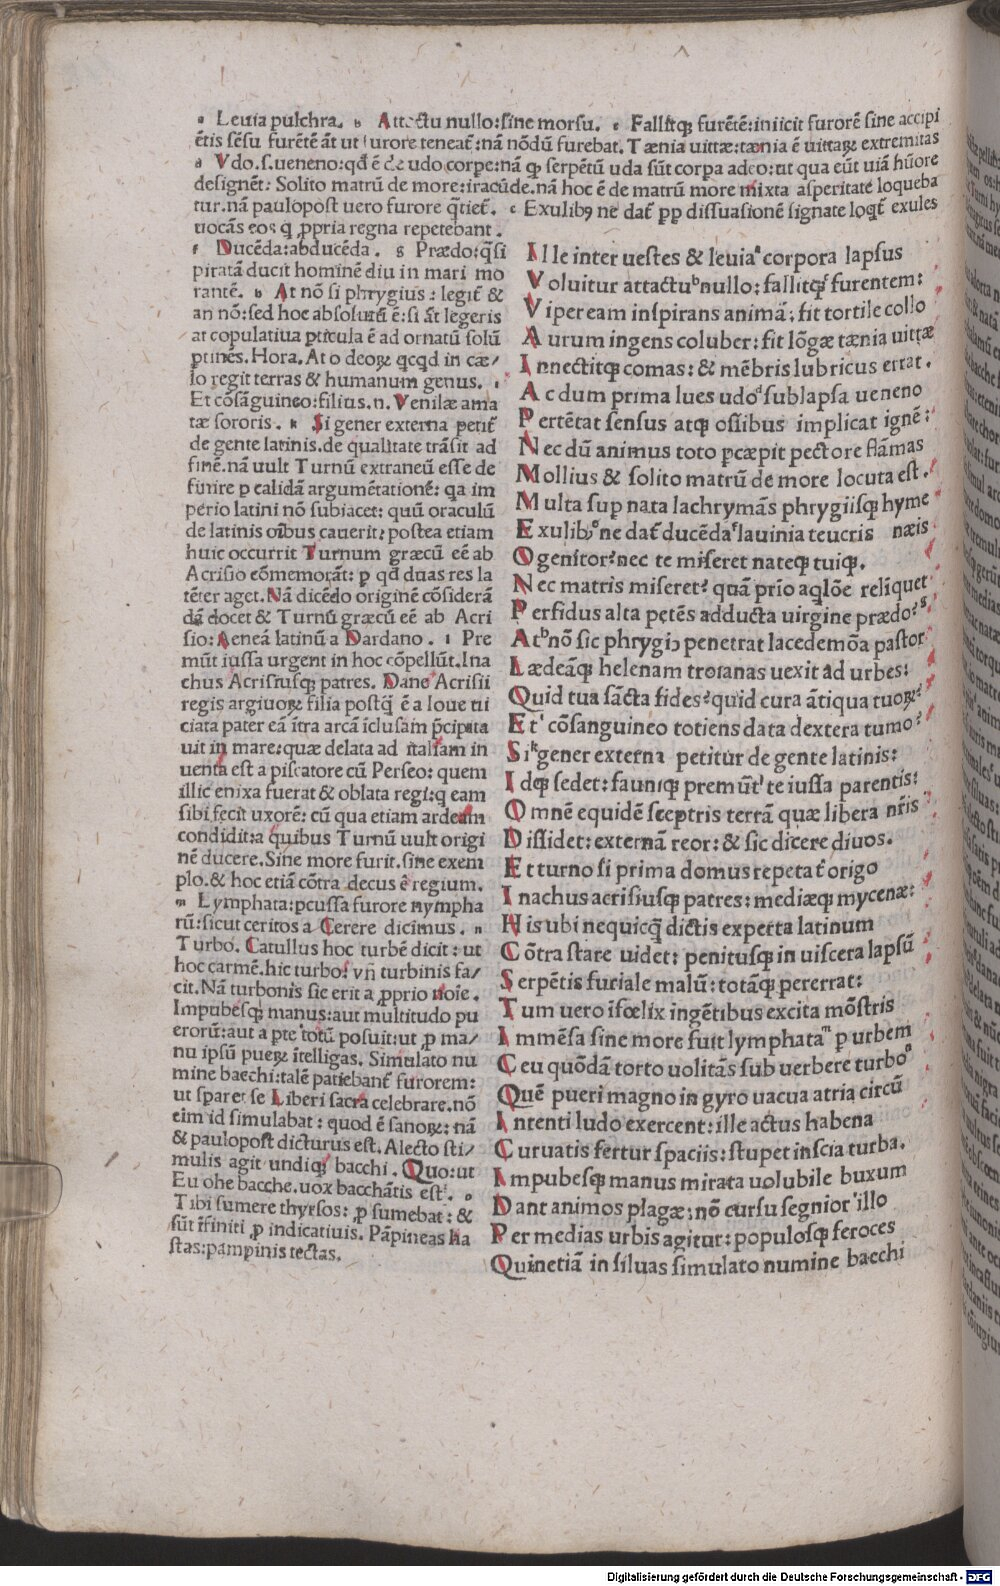 a Leuia pulchra. b Attactu nullo:sine morsu. c Fallitqꝫ furētē:iniicit furorē sine accipi
ētis sēsu furētē āt ut furore teneat̄:nā nōdū furebat. Tænia uittæ:tænia ē uittaꝝ extremitas
d Vdo.s.ueneno:qđ ē de udo corpe:nā ꝙ serpētū uda sūt corpa adeo:ut qua eūt uiā hūore
designēt: Solito matrū de more:iracūde.nā hoc ē de matrū more mixta asperitate loqueba
tur.nā paulopost uero furore q̄tiet̄. e Exulibꝰ ne dat̄ ꝓp dissuasionē signate loqt̄ exules
uocās eos q ꝓpria regna repetebant.
f Ducēda:abducēda. g Prædo:q̄si
piratā ducit hominē diu in mari mo
rantē. h At nō si phrygius: legit̄ &
an nō:sed hoc absolutū ē:si āt legeris
at copulatiua pticula ē ad ornatū solū
ptinēs.Hora.At o deoꝝ qcqd in cæ/
lo regit terras & humanum genus. i
Et cōsāguineo:filius.n.Venilæ ama
tæ sororis. k Si gener externa petit̄
de gente latinis.de qualitate trāsit ad
finē.nā uult Turnū extraneū esse de
finire p calidā argumētationē: qa im
perio latini nō subiacet: quū oraculū
de latinis oībus cauerit: postea etiam
huic occurrit Turnum græcū eē ab
Acrisio cōmemorāt: p qđ duas res la
tēter aget.Nā dicēdo originē cōsiderā
dā docet & Turnū græcū eē ab Acri
sio:Aeneā latinū a Dardano. l Pre
mūt iussa urgent in hoc cōpellūt.Ina
chus Acrisiusqꝫ patres. Dane Acrisii
regis argiuoꝝ filia postq̄ ē a Ioue ui
ciata pater eā ītra arcā īclusam p̄cipita
uit in mare:quæ delata ad italiam in
uenta est a piscatore cū Perseo: quem
illic enixa fuerat & oblata regi:q eam
sibi fecit uxorē: cū qua etiam ardeam
condidit:a quibus Turnū uult origi
nē ducere.Sine more furit.sine exem
plo.& hoc etiā cōtra decus ē regium.
m Lymphata:pcussa furore nympha
rū:sicut ceritos a Cerere dicimus. n
Turbo. Catullus hoc turbē dicit : ut
hoc carmē.hic turbo: vn̄ turbinis fa/
cit.Nā turbonis sic erit a ꝓprio noīe.
Impubesqꝫ manus:aut multitudo pu
erorū:aut a pte totū posuit:ut ꝓ ma/
nu ipsū pueꝝ ītelligas. Simulato nu
mine bacchi:talē patiebant̄ furorem:
ut sparet se Liberi sacra celebrare.nō
eim id simulabat : quod ē sanoꝝ: nā
& paulopost dicturus est. Alecto sti/
mulis agit undiqꝫ bacchi. Quo:ut
Eu ohe bacche.uox bacchātis est. o
Tibi sumere thyrsos: ꝓ sumebat: &
sūt īfiniti ꝓ indicatiuis. Pāpineas ha
stas:pampinis tectas.
Ille inter uestes & leuiaᵃ corpora lapsus
Voluitur attactuᵇ nullo: fallitqꝫᶜ furentem:
Vipeream inspirans animā; fit tortile collo
Aurum ingens coluber: fit lōgæ tænia uittæ
Innectitqꝫ comas: & mēbris lubricus errat.
Ac dum prima lues udoᵈ sublapsa ueneno
Pertētat sensus atqꝫ ossibus implicat ignē:
Nec dū animus toto pcæpit pectore flāmas
Mollius & solito matrū de more locuta est.
Multa sup nata lachrymās phrygiisqꝫ hyme
Exulibꝰᵉ ne dat̄ ducēdaᶠ lauinia teucris næis
O genitor: nec te miseret nateqꝫ tuiqꝫ.
Nec matris miseret? quā prīo aqlōe reliquet
Perfidus alta petēs adducta uirgine prædo?ᵍ
Atʰ nō sic phrygiꝰ penetrat lacedemōa pastor
Lædeāqꝫ helenam troianas uexit ad urbes:
Quid tua sācta fides? quid cura ātiqua tuoꝝ?
Etⁱ cōsanguineo totiens data dextera turno?
Siᵏ gener externa petitur de gente latinis:
Idqꝫ sedet: fauniqꝫ premūtˡ te iussa parentis:
Omnē equidē sceptris terrā quæ libera nr̄is
Dissidet: externā reor: & sic dicere diuos.
Et turno si prima domus repetat̄ origo
Inachus acrisiusqꝫ patres: mediæqꝫ mycenæ:
His ubi nequicq̄ dictis experta latinum
Cōtra stare uidet: penitusqꝫ in uiscera lapsū
Serpētis furiale malū: totāqꝫ pererrat:
Tum uero īfœlix ingētibus excita mōstris
Immēsa sine more fuit lymphataᵐ p urbem
Ceu quōdā torto uolitās sub uerbere turboⁿ
Quē pueri magno in gyro uacua atria circū
Intenti ludo exercent: ille actus habena
Curuatis fertur spaciis: stupet inscia turba.
Impubesqꝫ manus mirata uolubile buxum
Dant animos plagæ: nō cursu segnior illo
Per medias urbis agitur: populosqꝫ feroces
Quinetiā in siluas simulato numine bacchi
Digitalisierung gefördert durch die Deutsche Forschungsgemeinschaft - DFG